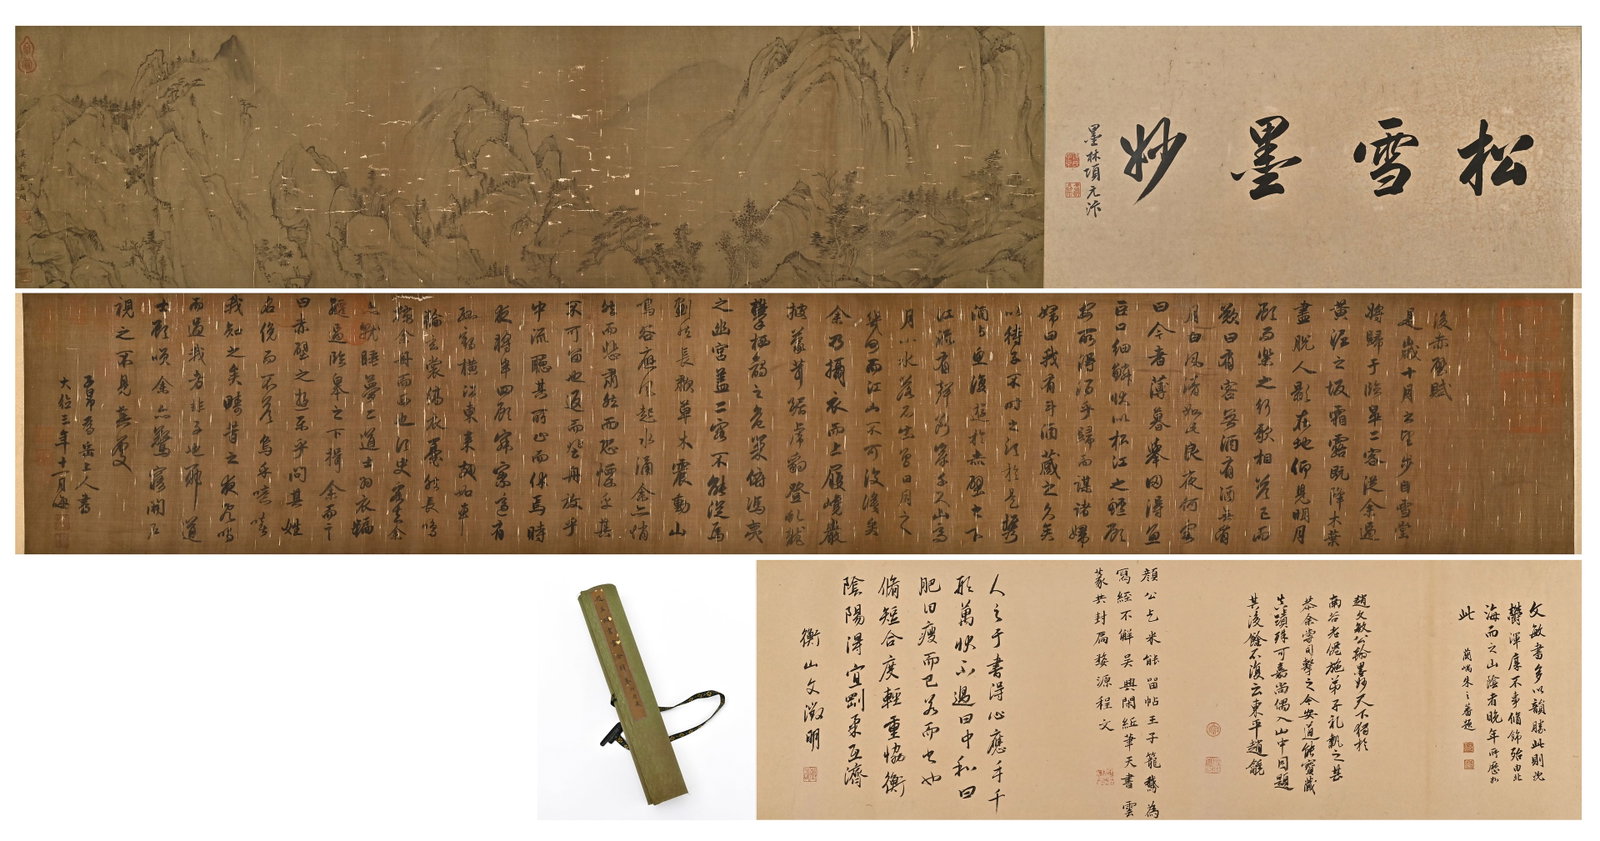 松雪墨妙
墨林項元汴
後赤壁賦
是歲十月之望步自雪堂
將歸于臨皋二客從余過
黃泥之坂霜露既降木葉
盡脫人影在地仰見明月
顧而樂之行歌相答已而
歎曰有客無酒有酒無肴
月白風清如此良夜何客
曰今者薄暮舉網得魚
巨口細鱗狀似松江之鱸顧
安所得酒乎歸而謀諸婦
婦曰我有斗酒藏之久矣
以待子不時之須於是攜
酒與魚復遊於赤壁之下
江流有聲斷岸千尺山高
月小水落石出曾日月之
幾何而江山不可復識矣
余乃攝衣而上履巉巖
披蒙茸踞虎豹登虬龍
攀栖鶻之危巢俯馮夷
之幽宮蓋二客不能從焉
劃然長嘯草木震動山
鳴谷應風起水涌余亦悄
然而悲肅然而恐凜乎其
不可留也返而登舟放乎
中流聽其所止而休焉時
夜將半四顧寂寥適有
孤鶴橫江東來翅如車
輪玄裳縞衣戛然長鳴
掠余舟而西也須臾客去余
亦就睡夢二道士羽衣蹁
躚過臨皋之下揖余而言
曰赤壁之遊樂乎問其姓
名俛而不答嗚呼噫嘻
我知之矣疇昔之夜飛鳴
而過我者非子也耶道
士顧笑余亦驚寤開戶
視之不見其處
子昂為岳上人書
大德三年十一月晦
文敏書多以韻勝此則沈
鬱渾厚不事脩飾殆由北
海而之山陰者晚年所歷如
此
蘭嵎朱之蕃題
趙文敏公翰墨妙天下獨於
南谷老僊施弟子禮執之甚
恭余嘗目擊之今安道能寶藏
真蹟殊可嘉尚偶入山中因題
其後餘不復云東平趙
顏公乞米能留帖王子籠鵝為
寫經不解吳興閑紙筆天書雲
篆共封扃婺源程文
人之于書得心應手千
形萬狀不過曰中和曰
肥曰瘦而已若而書也
脩短合度輕重協衡
陰陽得宜剛柔互濟
衡山文徵明